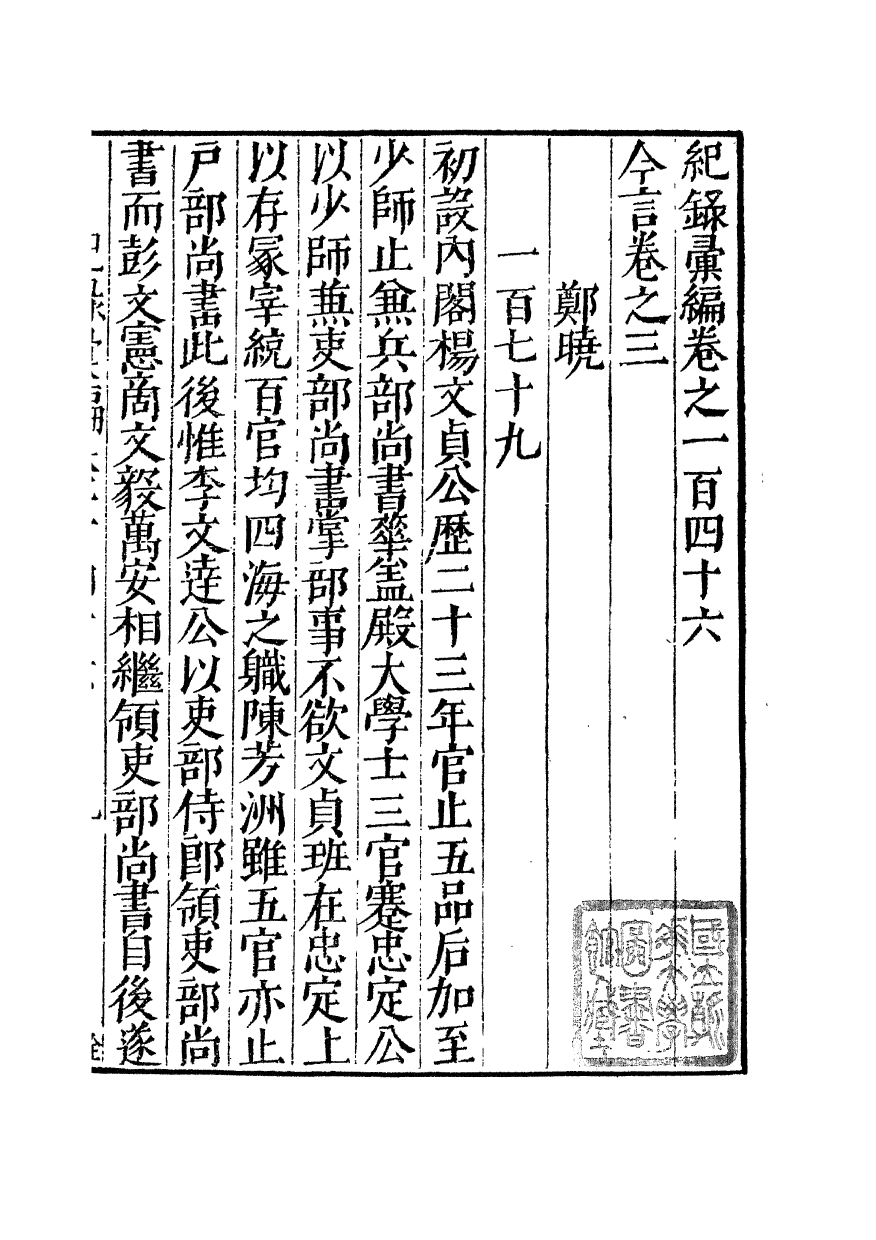 紀錄彙編卷之一百四十六
今言卷之三
鄭曉
一百七十九
初設內閣楊文貞公歷二十三年官止五品后加至
少師止兼兵部尚書華盖殿大學士三官蹇忠定公
以少師兼吏部尚書掌部事不欲文貞班在忠定上
以存冢宰統百官均四海之職陳芳洲雖五官亦止
戶部尚書此後惟李文達公以吏部侍郎領吏部尚
書而彭文憲商文毅萬安相繼領吏部尚書自後遂